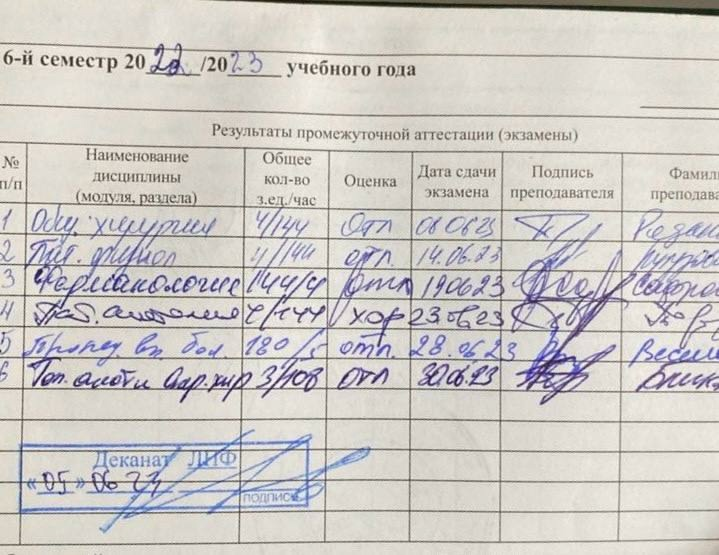 6-й семестр 2022/2023 учебного года
Результаты промежуточной аттестации (экзамены)
№ п/п Наименование дисциплины (модуля, раздела) Общее кол-во з.ед./час Оценка Дата сдачи экзамена Подпись преподавателя Фамили преподава
1 Общ. хирургия 4/144 Отл 06 06 23
2 Пат. физиол 4/144 отл. 14.06.23
3 Фармакология 144/4 отл 190623
4 Пат. анатомия 4/144 хор 23.06.23
5 Пропед. вн. бол. 180/5 отл. 28.06.23
6 Топ. анат и опер. хир 3/108 отл 30.06.23
Деканат ЛПФ
«05» 06 23
подпись